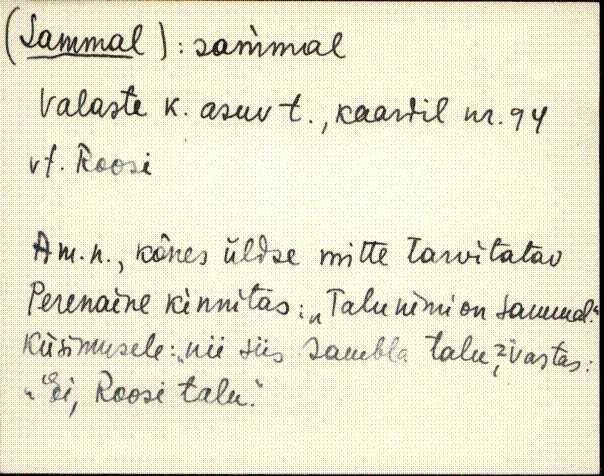 (Sammal) : sam̀mal
Valaste k. asuv t., kaardil nr. 94
vt. Roosi
Am. n., kõnes üldse mitte tarvitatav
Perenaine kinnitas: „Talu nimi on Sammal."
Küsimusele: „nii siis Sambla talu?", vastas:
„Ei, Roosi talu."